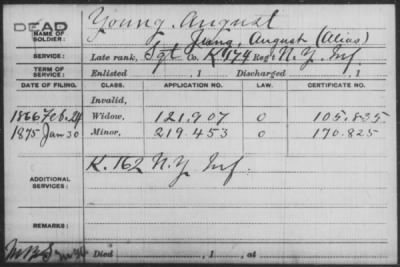 DEAD
NAME OF SOLDIER: Young, August
Jung, August (Alias)
SERVICE: Late rank, Sgt Co. K 174 Reg't N.Y. Inf
TERM OF SERVICE: Enlisted , 1 Discharged , 1
DATE OF FILING. CLASS. APPLICATION NO. LAW. CERTIFICATE NO.
Invalid,
1866 Feb. 24 Widow, 121.907 0 105.835
1875 Jan 30 Minor, 219.453 0 170.825
ADDITIONAL SERVICES: K. 162 N.Y. Inf.
REMARKS:
Died , 1 , at